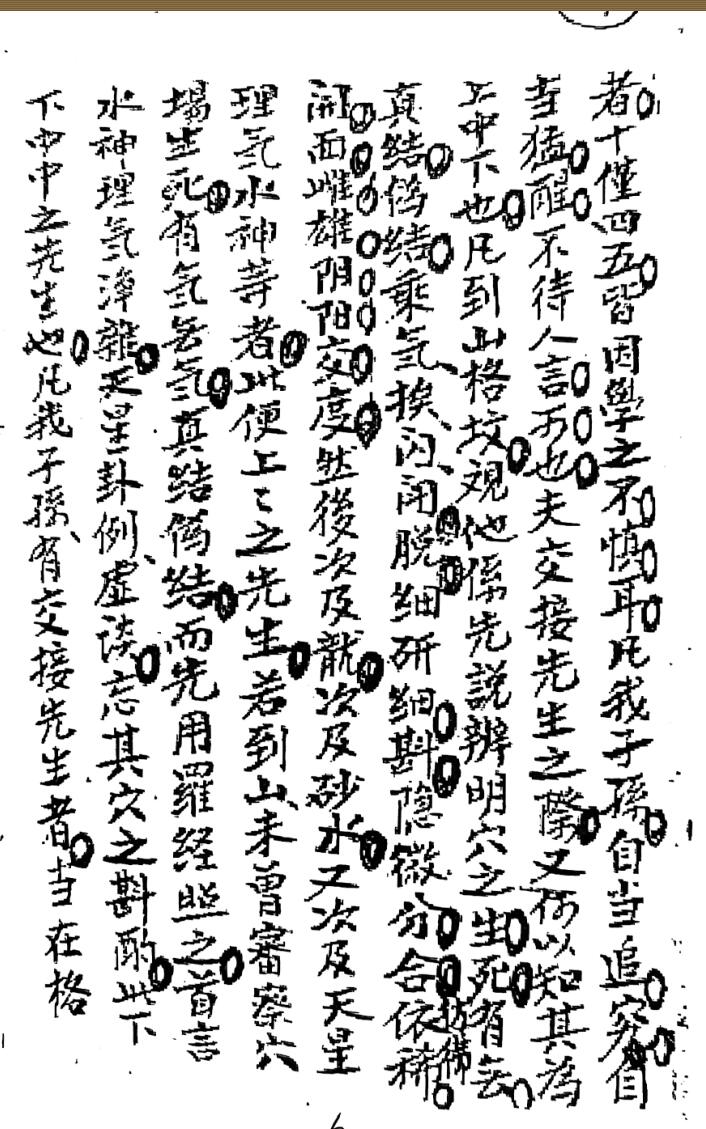 者十僅四五皆因學之不慎耳凡我子孫自当追究自
当猛醒不待人言可也夫交接先生之際又何以知其為
上中下也凡到山格坟观他係先説辨明穴之生死有无
真结偽结乘气挨闪闭脱细研细斟隐微分合依稀彷彿
開面雌雄阴阳交度然後次及龍次及砂水又次及天星
理气水神等者此便上上之先生若到山未曾審察穴
場生死有气无气真结偽结而先用羅经照之首言
水神理气淨雜天星卦例虚谈忘其穴之斟酌此下
下中中之先生也凡我子孫有交接先生者当在格
6